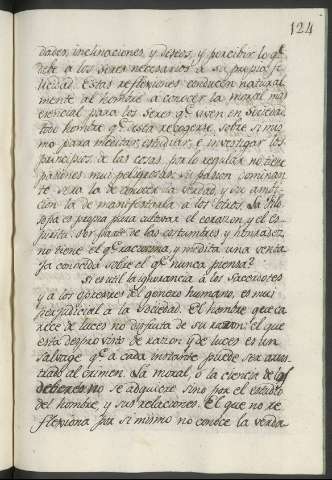 124
dades, inclinaciones, y deseos, y percibir lo qe.
debe a los seres necesarios a su propia fe-
licidad. Estas reflexiones conducen natural-
mente al hombre a conocer la moral mas
esencial para los seres qe. viven en sociedad.
todo hombre qe. gusta recogerse sobre si mis-
mo para meditar, estudiar, e investigar los
principios de las cosas, por lo regular no tiene
pasiones muy peligrosas: su pasion dominan-
te sera la de conocer la verdad, y su ambi-
cion la de manifestarla a los otros. La filo-
sofia es propia para cultivar el corazon, y el es-
piritu. Por parte de las costumbres y honradez,
no tiene el qe. raciocina, y medita una venta-
ja conocida sobre el qe. nunca piensa?
Si es util la ignorancia à los sacerdotes
y a los opresores del genero humano, es muy
perjudicial à la sociedad. El hombre que ca-
rece de luces no disfruta de su razon: el que
esta desprovisto de razon y de luces es un
salvage qe. a cada instante puede ser arras-
trado al crimen. La moral, ò la ciencia de los
deberes no se adquiere sino por el estudio
del hombre, y sus relaciones. El que no re-
flexiona por si mismo no conoce la verda-